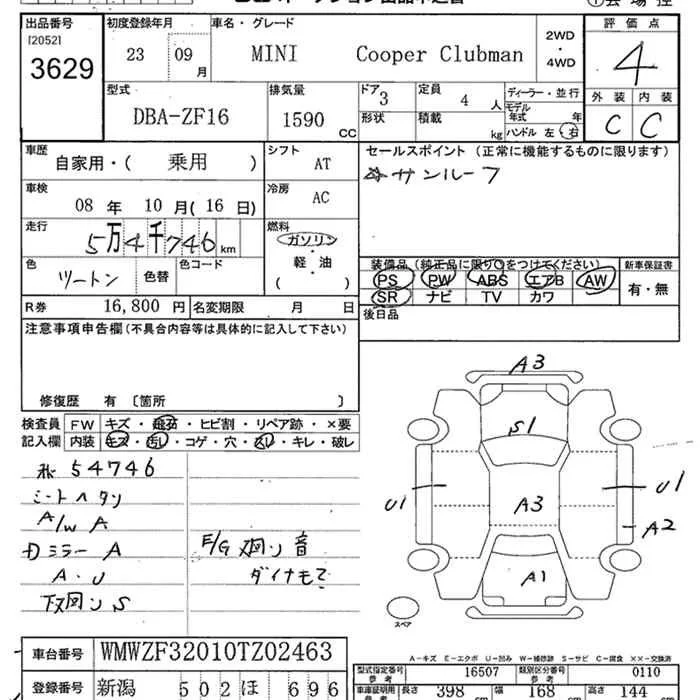 出品番号 初度登録年月 車名・グレード 2WD・4WD 評価点
[2052]
3629 23 09月 MINI Cooper Clubman 4
型式 排気量 ドア 定員 ディーラー・並行 外装 内装
DBA-ZF16 1590 CC 3 4 人 モデル年式 年 C C
形状 積載 kg ハンドル 左・右
車歴 シフト セールスポイント (正常に機能するものに限ります)
自家用・( 乗用 ) AT サンルーフ
車検 冷房
08 年 10 月(16 日) AC
走行 燃料
5万4千746km ガソリン
軽・油
( )
色 色替 色コード
ツートン
装備品(純正品に限り○をつけてください) 新車保証書
PS PW ABS エアB AW 有・無
SR ナビ TV カワ
R券 16,800 円 名変期限 月 日 後日品
注意事項申告欄(不具合内容等は具体的に記入して下さい)
修復歴 有 〔箇所 〕
検査員 FW キズ・飛石・ヒビ割・リペア跡・×要
記入欄 内装 キズ・汚レ・コゲ・穴・スレ・キレ・破レ
54746
シートヘタリ
A/W A
Dミラー A
A・U
下廻り S
E/G廻り音
ダイナモ?
A3
S1
U1
A3
U1
A2
A1
スペア
A−キズ E−エクボ U−凹み W−補修跡 S−サビ C−腐食 ××−交換済
車台番号 WMWZF32010TZ02463
登録番号 新潟 502 ほ 696
型式指定番号 参考 16507 類別区分番号 参考 0110
車庫証明用 参考 長さ 398 cm 幅 168 cm 高さ 144